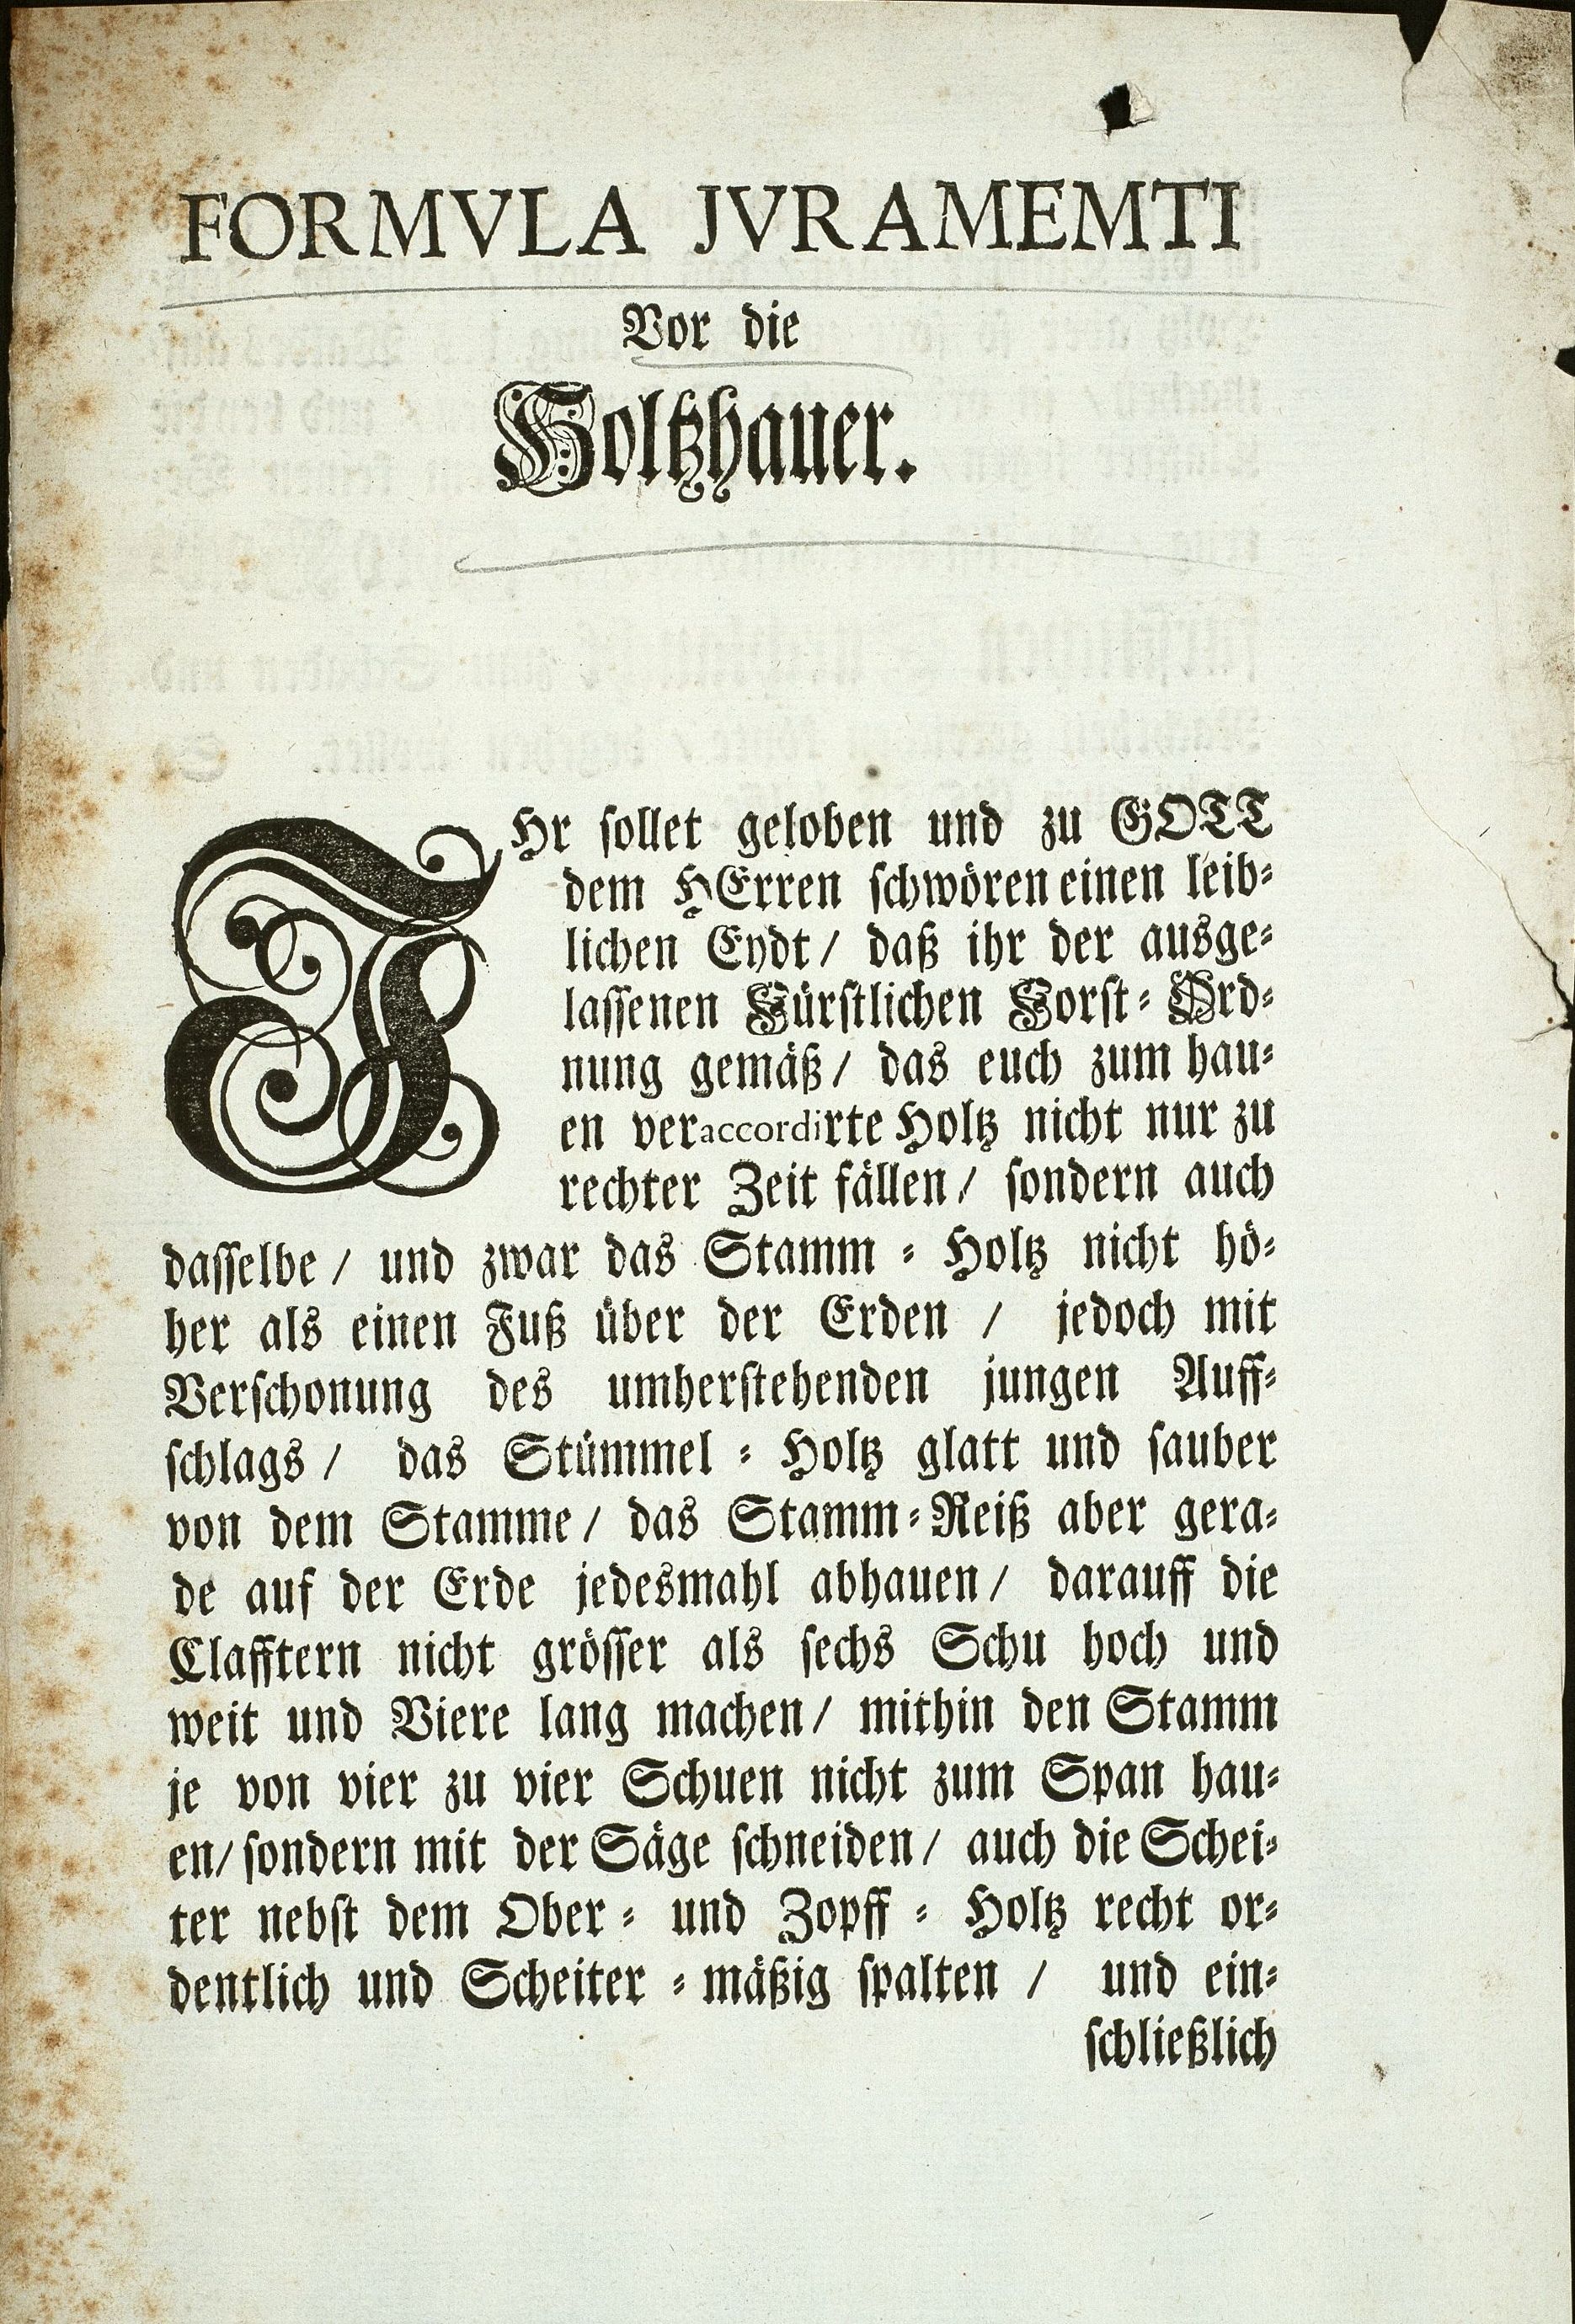 FORMVLA JVRAMEMTI
Vor die
Holtzhauer.
IHr sollet geloben und zu GOTT
dem HErren schwören einen leib-
lichen Eydt / daß ihr der ausge-
lassenen Fürstlichen Forst- Ord-
nung gemäß / das euch zum hau-
en veraccordirte Holtz nicht nur zu
rechter Zeit fällen / sondern auch
dasselbe / und zwar das Stamm - Holtz nicht hö-
her als einen Fuß über der Erden / jedoch mit
Verschonung des umherstehenden jungen Auff-
schlags / das Stümmel - Holtz glatt und sauber
von dem Stamme / das Stamm-Reiß aber gera-
de auf der Erde jedesmahl abhauen / darauff die
Clafftern nicht grösser als sechs Schu hoch und
weit und Viere lang machen / mithin den Stamm
je von vier zu vier Schuen nicht zum Span hau-
en / sondern mit der Säge schneiden / auch die Schei-
ter nebst dem Ober - und Zopff - Holtz recht or-
dentlich und Scheiter - mäßig spalten / und ein-
schließlich